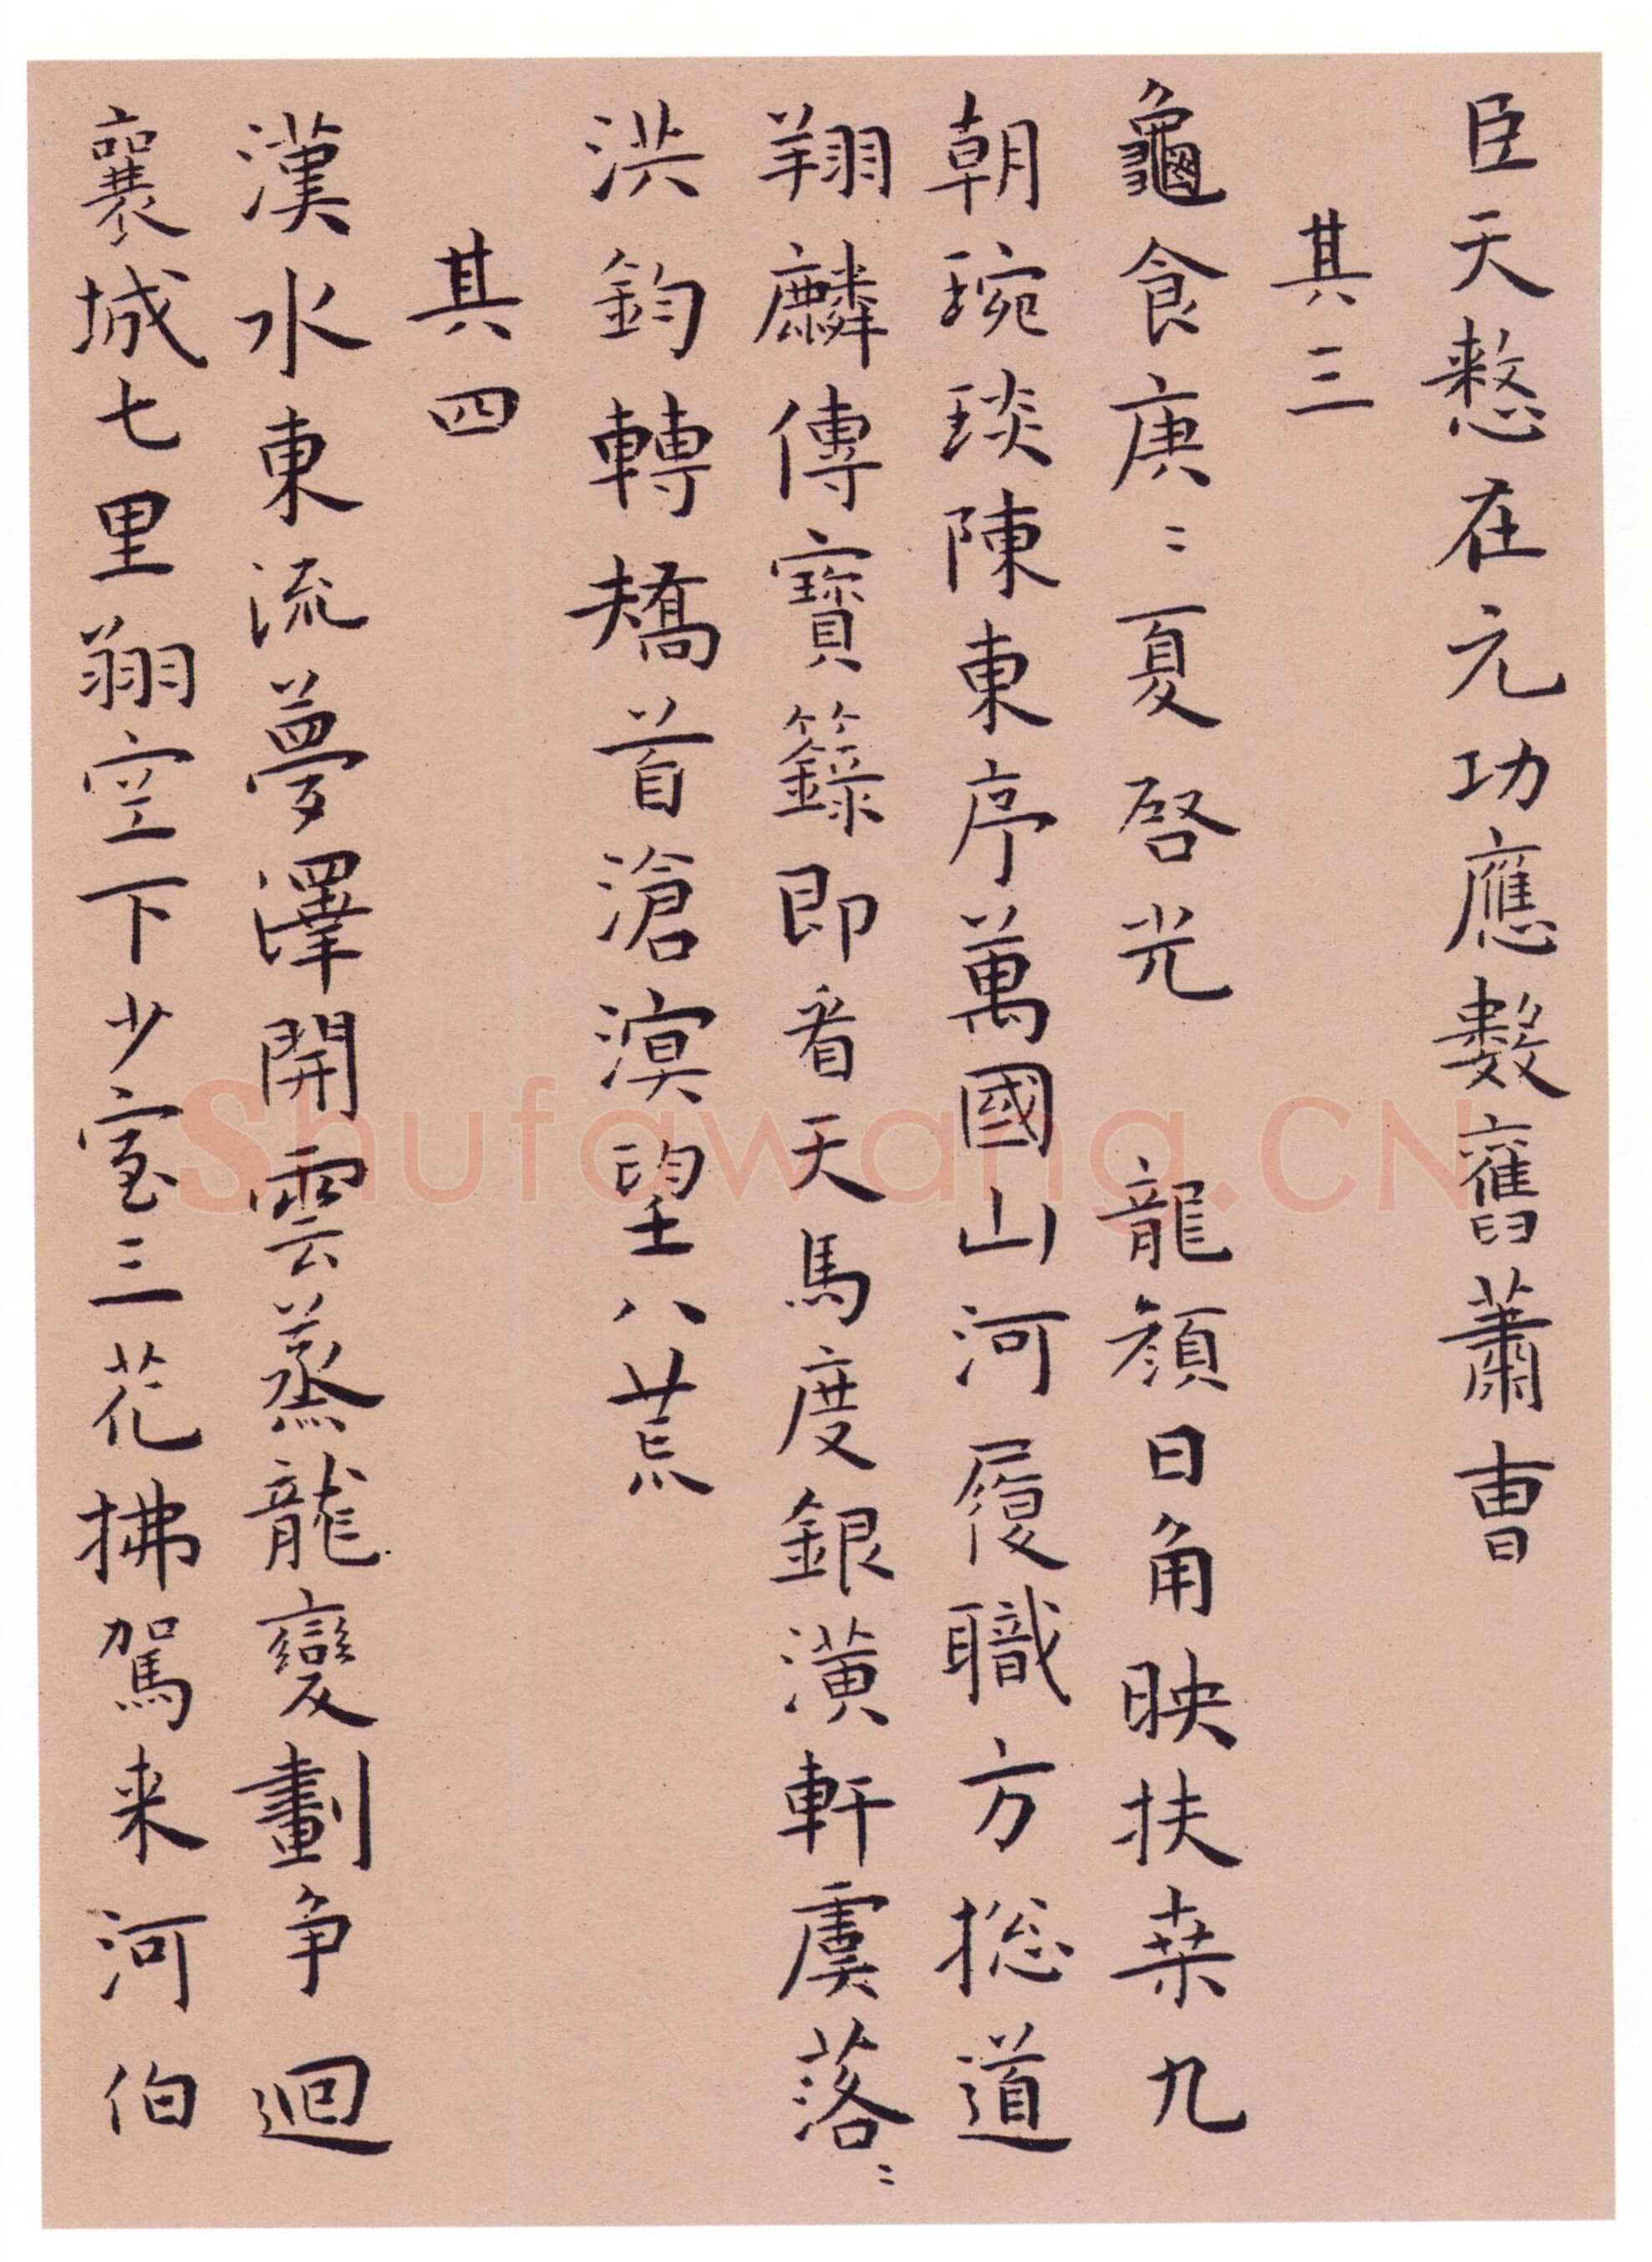 臣天憖在元功應數舊蕭曹
其三
龜食庚〻夏啓光 龍顏日角映扶桒九
朝琬琰陳東序萬國山河履職方揔道
翔麟傳寶籙即看天馬度銀潢軒虞落〻
洪鈞轉矯首滄溟望八荒
其四
漢水東流夢澤開雲蒸龍變劃争迴
襄城七里翔空下少室三花拂駕来河伯
Shufawang.CN